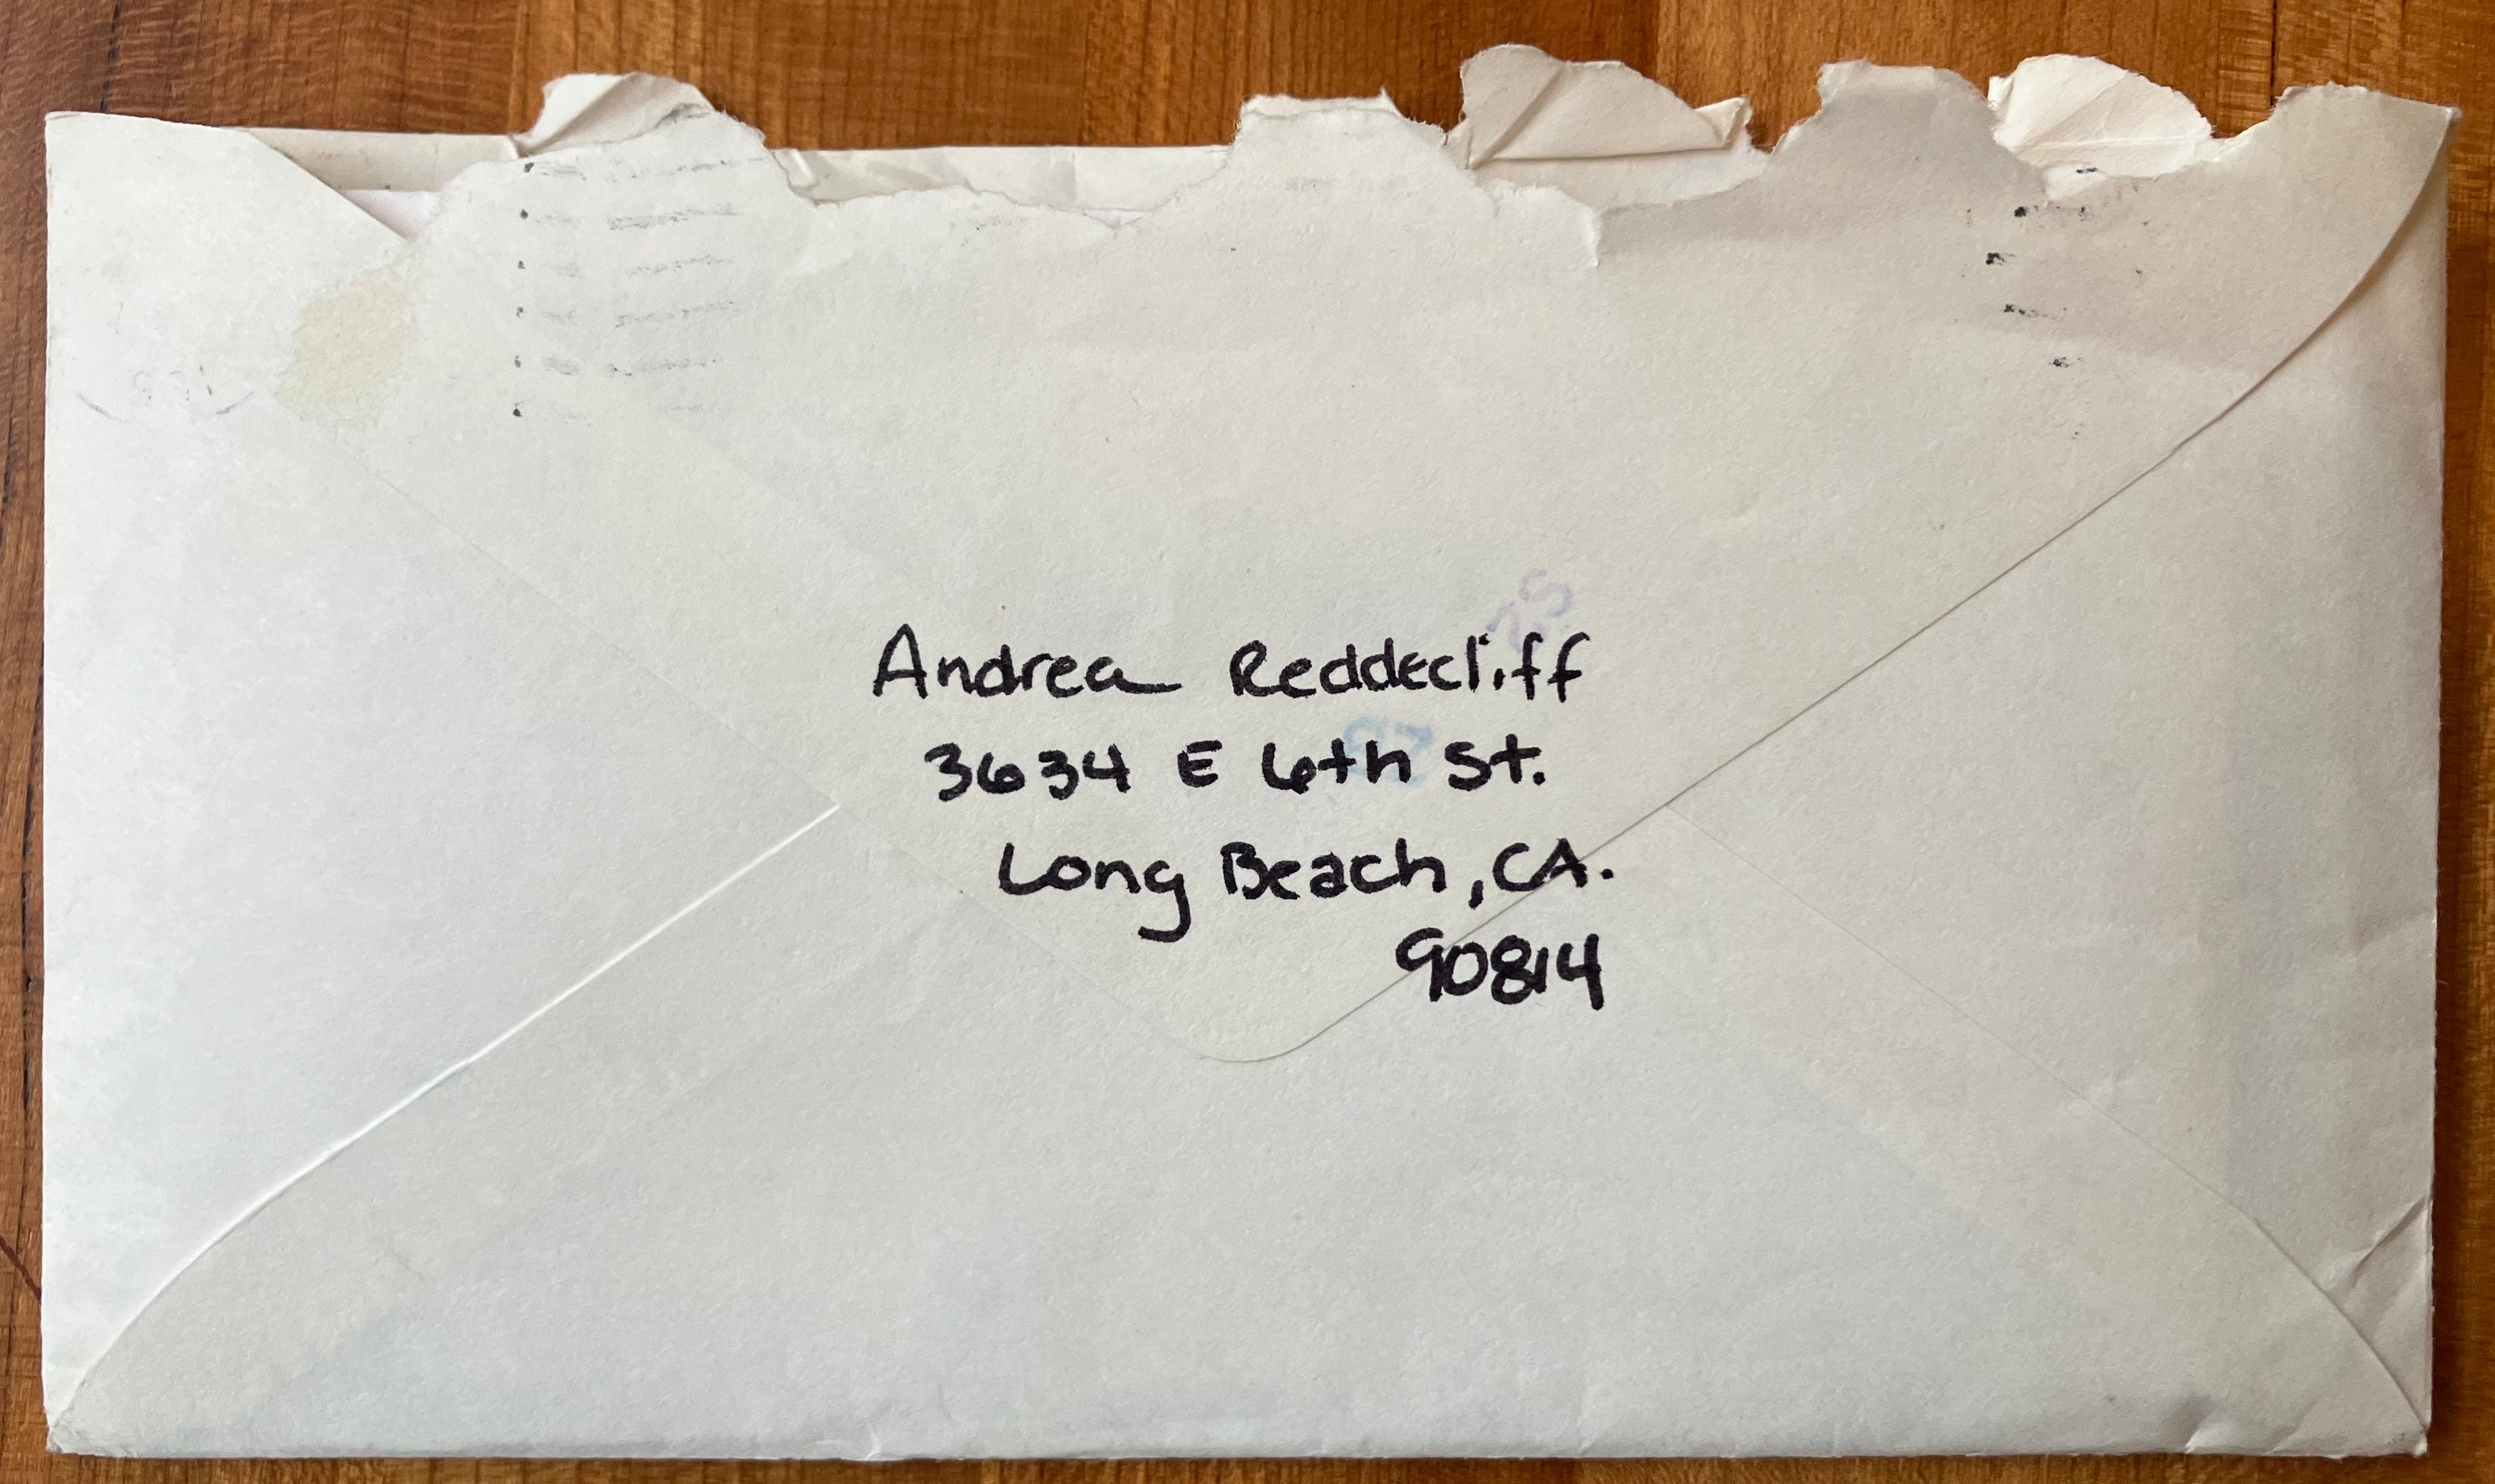 Andrea Reddecliff
3634 E 6th St.
Long Beach, CA.
90814